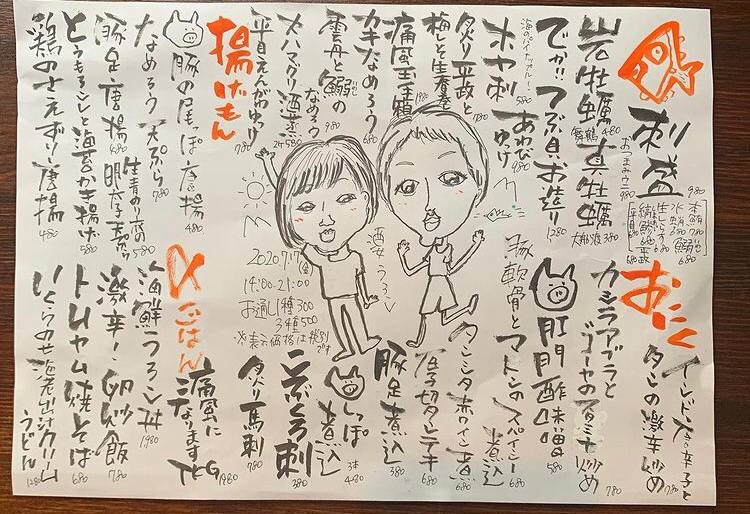 刺盛 980
おつまみウニ 980
本鮪 780
水タコ 380
生しらす 580
鰤 680
平政 680
岩牡蠣 480
真牡蠣
舞鶴
大船渡 380
でか!!つぶ貝お造り 1280
海のパイナップル!
ホヤ刺 580
あわび 980
ゆっけ
炙り平政と 780
梅しそ生春巻
痛風玉手箱 1980
カキなめろう 680
雲丹と鰯の
なめろう 980
大ハマグリ酒蒸 2ヶ580
平目えんがわゆっけ 780
揚げもん
豚の尾っぽ唐揚 480
なめろう天ぷら 780
豚足唐揚 480
生青のり衣の
明太子天ぷら 580
とうもろこしと海苔かき揚げ 580
鶏のさえずり唐揚 480
2020 7/17(金)
14:00-21:00
お通し1種300
3種500
※表示価格は税別です
酒女 うろこ
おにく
インドネシア辛子と
タンの激辛炒め 780
カシラアブラと
ゴーヤのスタミナ炒め 780
肛門酢味噌 580
豚軟骨と
マトンのスパイシー煮込 680
タンシタ赤ワイン煮 680
厚切タンテキ 680
豚足煮込 380
しっぽ煮込 3本480
こぶくろ刺 380
炙り馬刺 780
〆ごはん
痛風になりますTKG 1980
海鮮うろこ丼 1980
激辛!卵炒飯 780
トムヤム焼そば 680
いくらのせ海老出汁クリームうどん 1280